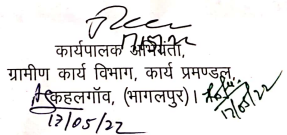 17/5/22
कार्यपालक अभियंता,
ग्रामीण कार्य विभाग, कार्य प्रमण्डल,
कहलगाँव, (भागलपुर)।
17/05/22
17/05/22